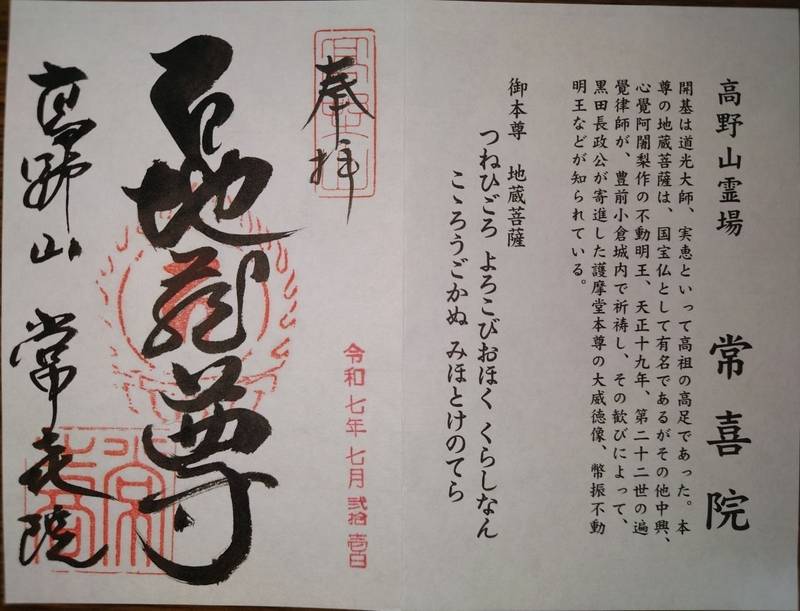 高野山霊場 常喜院
開基は道光大師、実恵といって高祖の高足であった。本
尊の地蔵菩薩は、国宝仏として有名であるがその他中興、
心覺阿闍梨作の不動明王、天正十九年、第二十二世の遍
覺律師が、豊前小倉城内で祈祷し、その歓びによって、
黒田長政公が寄進した護摩堂本尊の大威徳像、幣振不動
明王などが知られている。
御本尊 地蔵菩薩
つねひごろ よろこびおほく くらしなん
こゝろうごかぬ みほとけのてら
奉拝
令和七年七月弐拾壱日
地蔵尊
高野山 常喜院